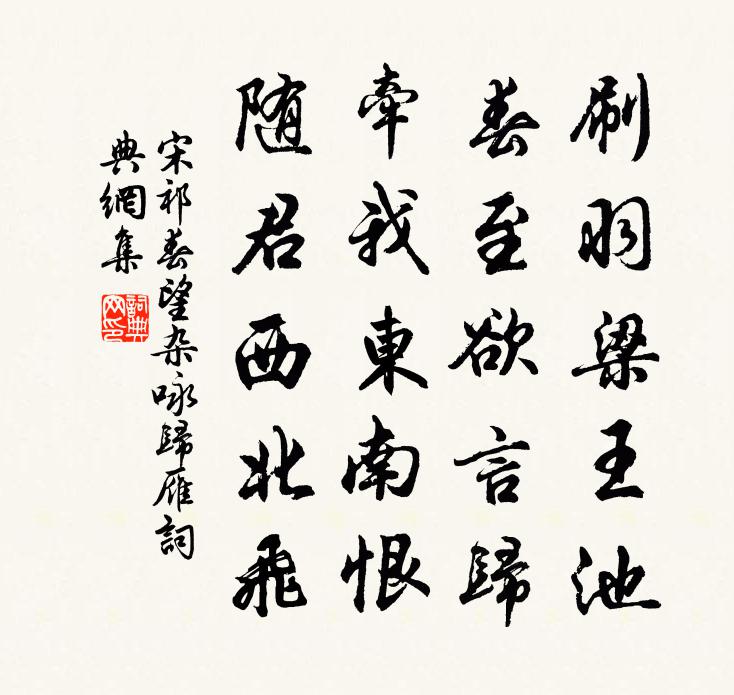 刷羽梁王池
春至欲言歸
牽我東南恨
随君西北飛
宋祁春望杂咏歸雁詞
典網集
詞典
网印